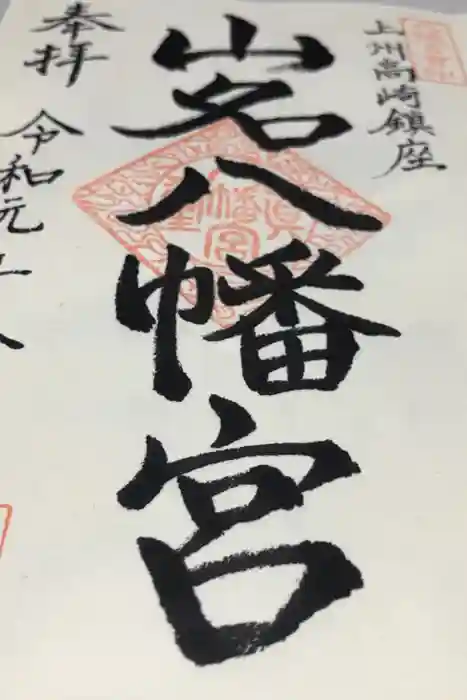 上州高崎鎮座
山名八幡宮
奉拝
令和元